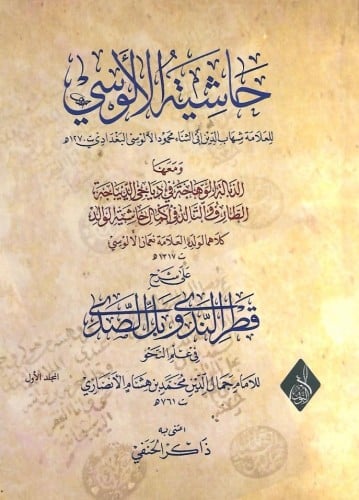 حاشية الألوسي
للعلامة شهاب الدين أبي الثناء محمود الألوسي البغدادي ت ١٢٧٠ هـ
ومعها
الدلالة الوهاجة في ديباجتي الديباجة
الطارف والتالد في إكمال حاشية الوالد
كلاهما لولده العلامة نعمان الألوسي
ت ١٣١٧ هـ
على شرح
قطر الندى وبل الصدى
في علم النحو
للإمام جمال الدين محمد بن هشام الأنصاري
ت ٧٦١ هـ
المجلد الأول
اعتنى به
ذاكر الحنفي